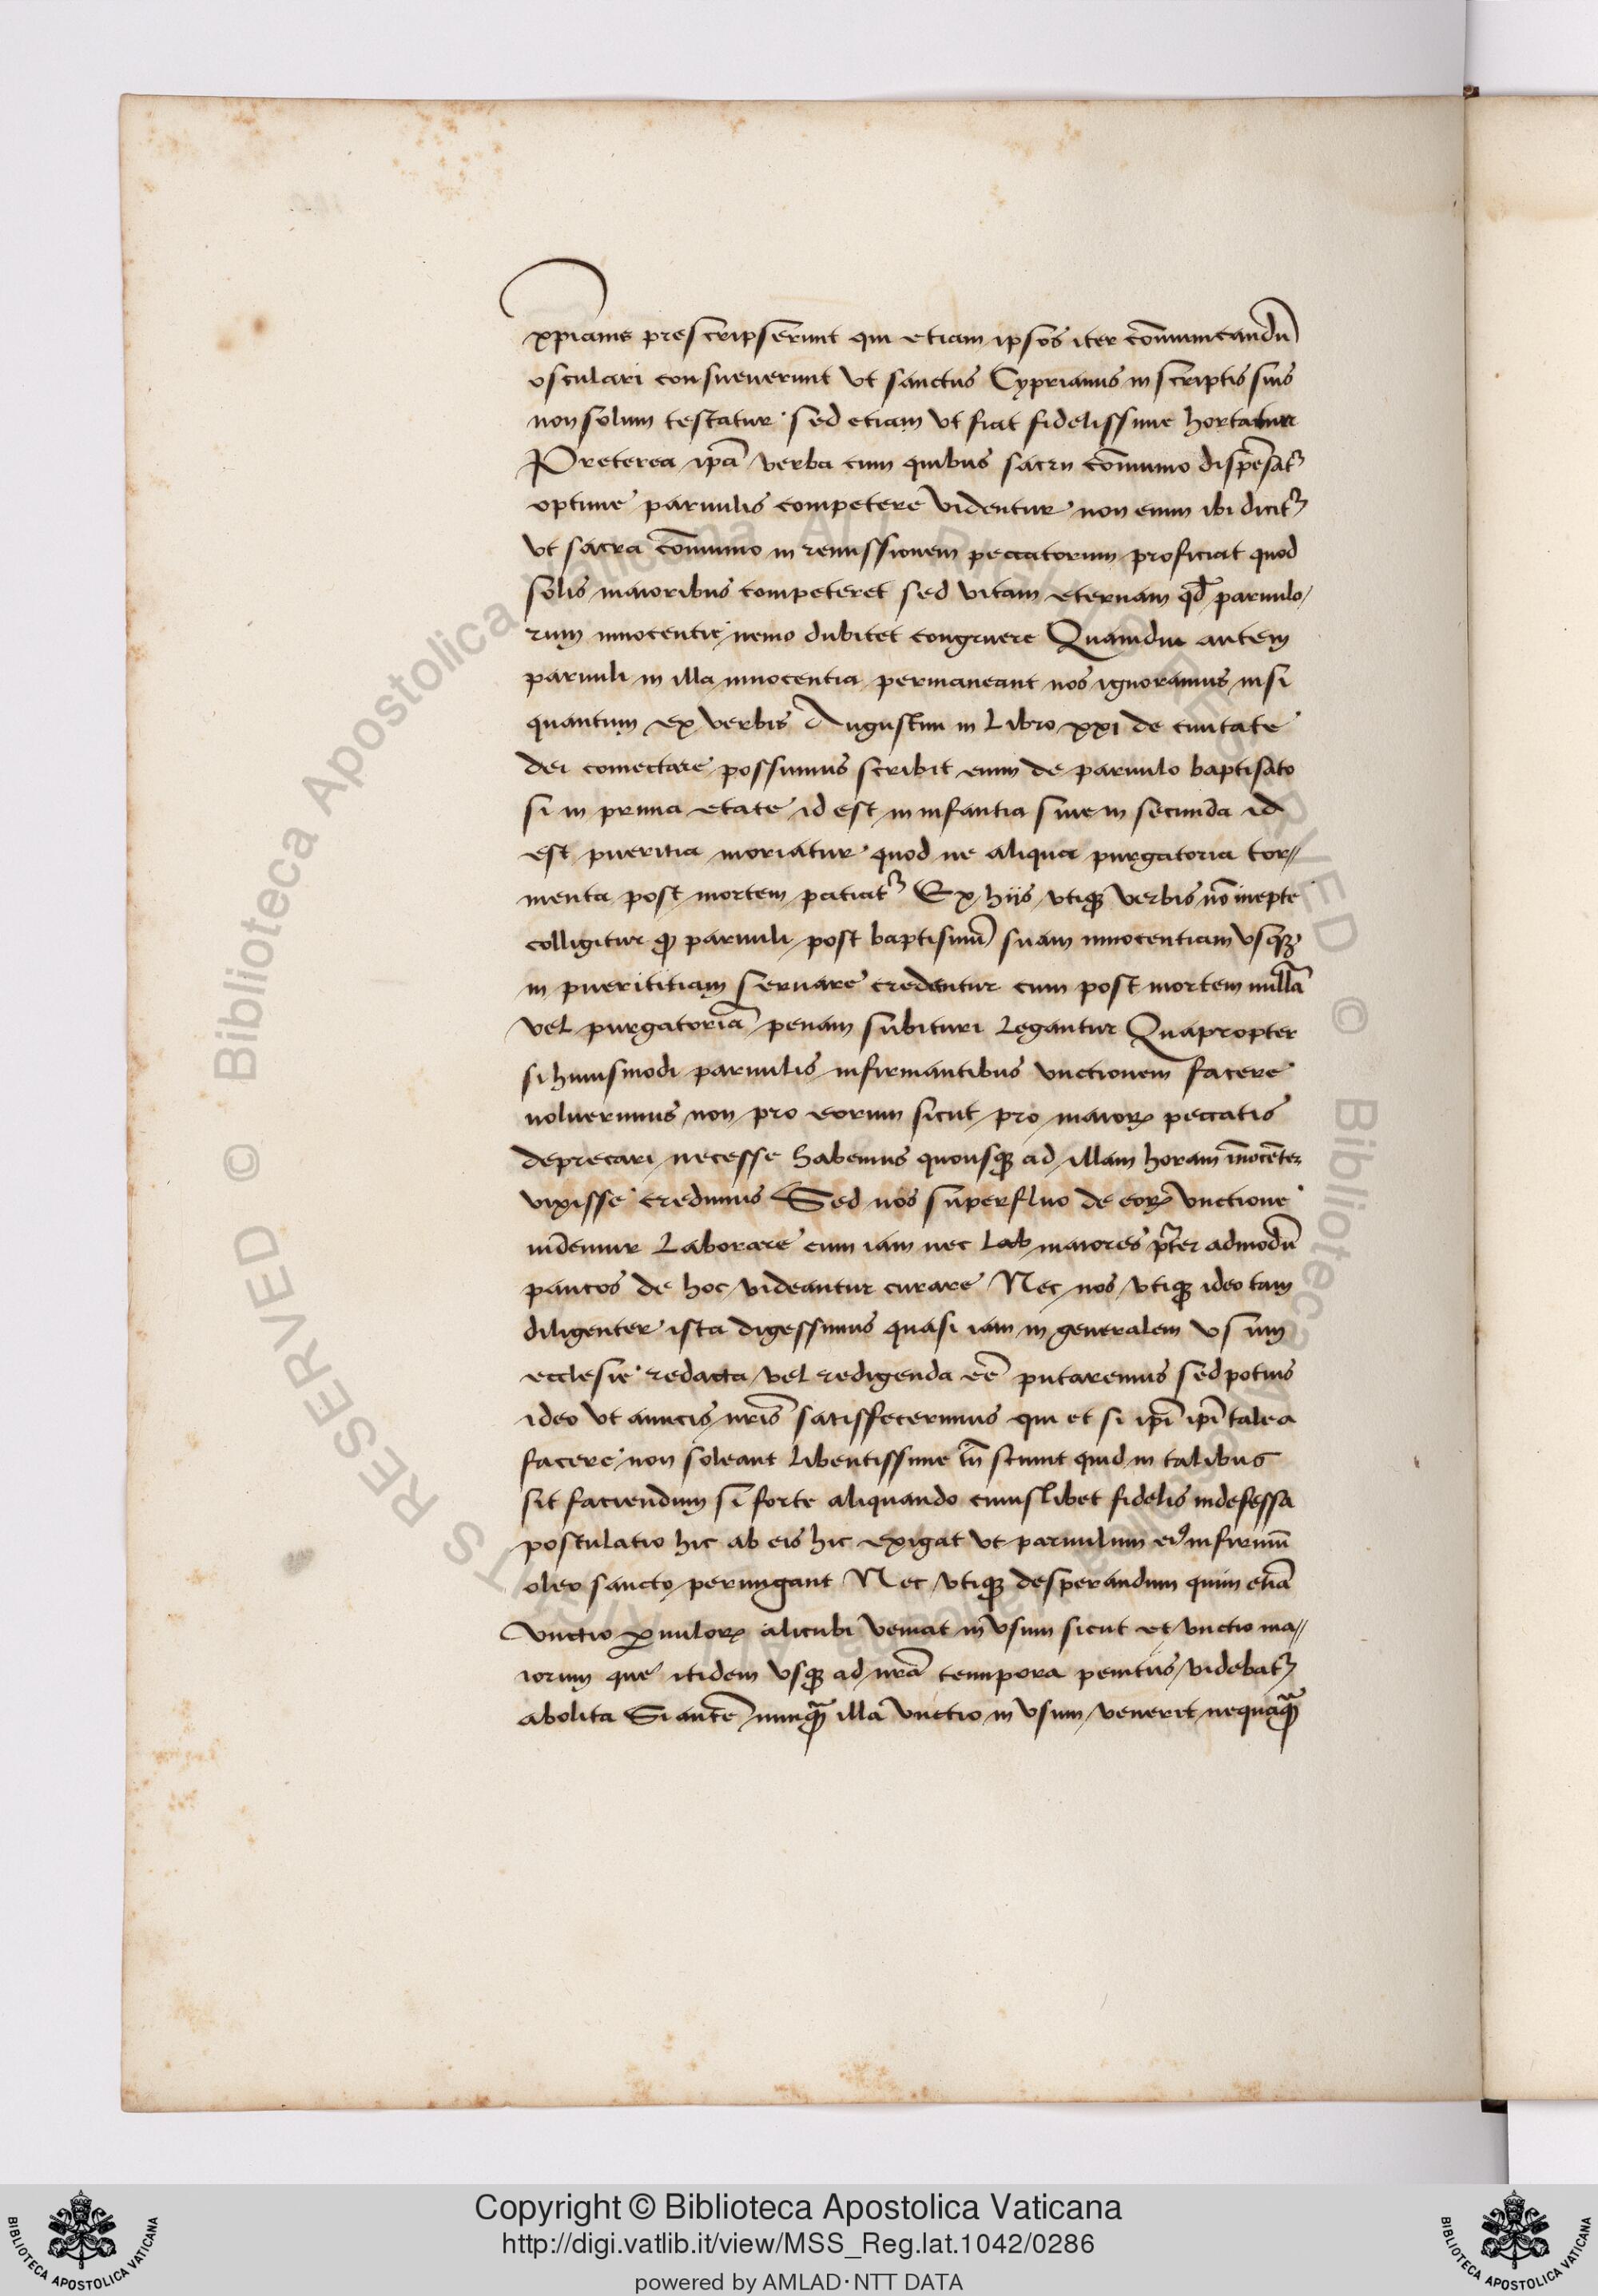 xpianis prescripserunt qui etiam ipsos iter co̅municandu̅
osculari consueuerunt vt sanctus Cyprianus in scriptis suis
non solum testatur sed etiam vt fiat fidelissime hortatur
Preterea ip̅a verba cum quibus sacra co̅munio dispe̅satꝛ
optime paruulis competere videntur non enim ibi dicitꝛ
vt sacra co̅munio in remissionem peccatorum proficiat quod
solis maioribus competeret sed vitam eternam qd̅ paruulo/
rum innocentie nemo dubitet congruere Quamdiu autem
paruuli in illa innocentia permaneant nos ignoramus nisi
quantum ex verbis Augustini in Libro xxi de ciuitate
dei coniectare possumus scribit enim de paruulo baptisato
si in prima etate id est in infantia siue in secunda id
est pueritia moriatur quod ne aliqua purgatoria tor//
menta post mortem patiatꝛ Ex hiis vtiqꝫ verbis no̅ inepte
colligitur ꝙ paruuli post baptismu̅ suam innocentiam vsqꝫ
in puerititiam seruare credentur cum post mortem nulla̅
vel purgatoria̅ penam subituri Legantur Quapropter
si huiusmodi paruulis infirmantibus vnctionem facere
voluerimus non pro eorum sicut pro maioꝝ peccatis
deprecari necesse habemus quousqꝫ ad illam horam i̅noce̅ter
vixisse credimus Sed nos superfluo de eoꝝ vnctione
videmur Laborare cum iam nec Lab maiores p̅ter admodu̅
paucos de hoc videantur curare Nec nos vtiqꝫ ideo tam
diligenter ista digessimus quasi iam in generalem vsum
ecclesie redacta vel redigenda ee̅ putaremus sed potius
ideo vt amicis nr̅is satisfecerimus qui et si ip̅i ip̅i talea
facere non soleant Libentissime tn̅ sciunt quid in talibus
sit faciendum si forte aliquando cuiuslibet fidelis indefessa
postulatio hic ab eis hic exigat vt paruulum eiꝰ infirmu̅
oleo sancto perungant Nec vtiqꝫ desperandum quin etia̅
vnctio ꝑuuloꝝ alicubi veniat in vsum sicut et vnctio ma//
iorum que itidem vsqꝫ ad nr̅a tempora penitus videbatꝛ
abolita Si aute̅ nunqua̅ illa vnctio in vsum venerit nequaqua̅
Copyright © Biblioteca Apostolica Vaticana
http://digi.vatlib.it/view/MSS_Reg.lat.1042/0286
powered by AMLAD·NTT DATA